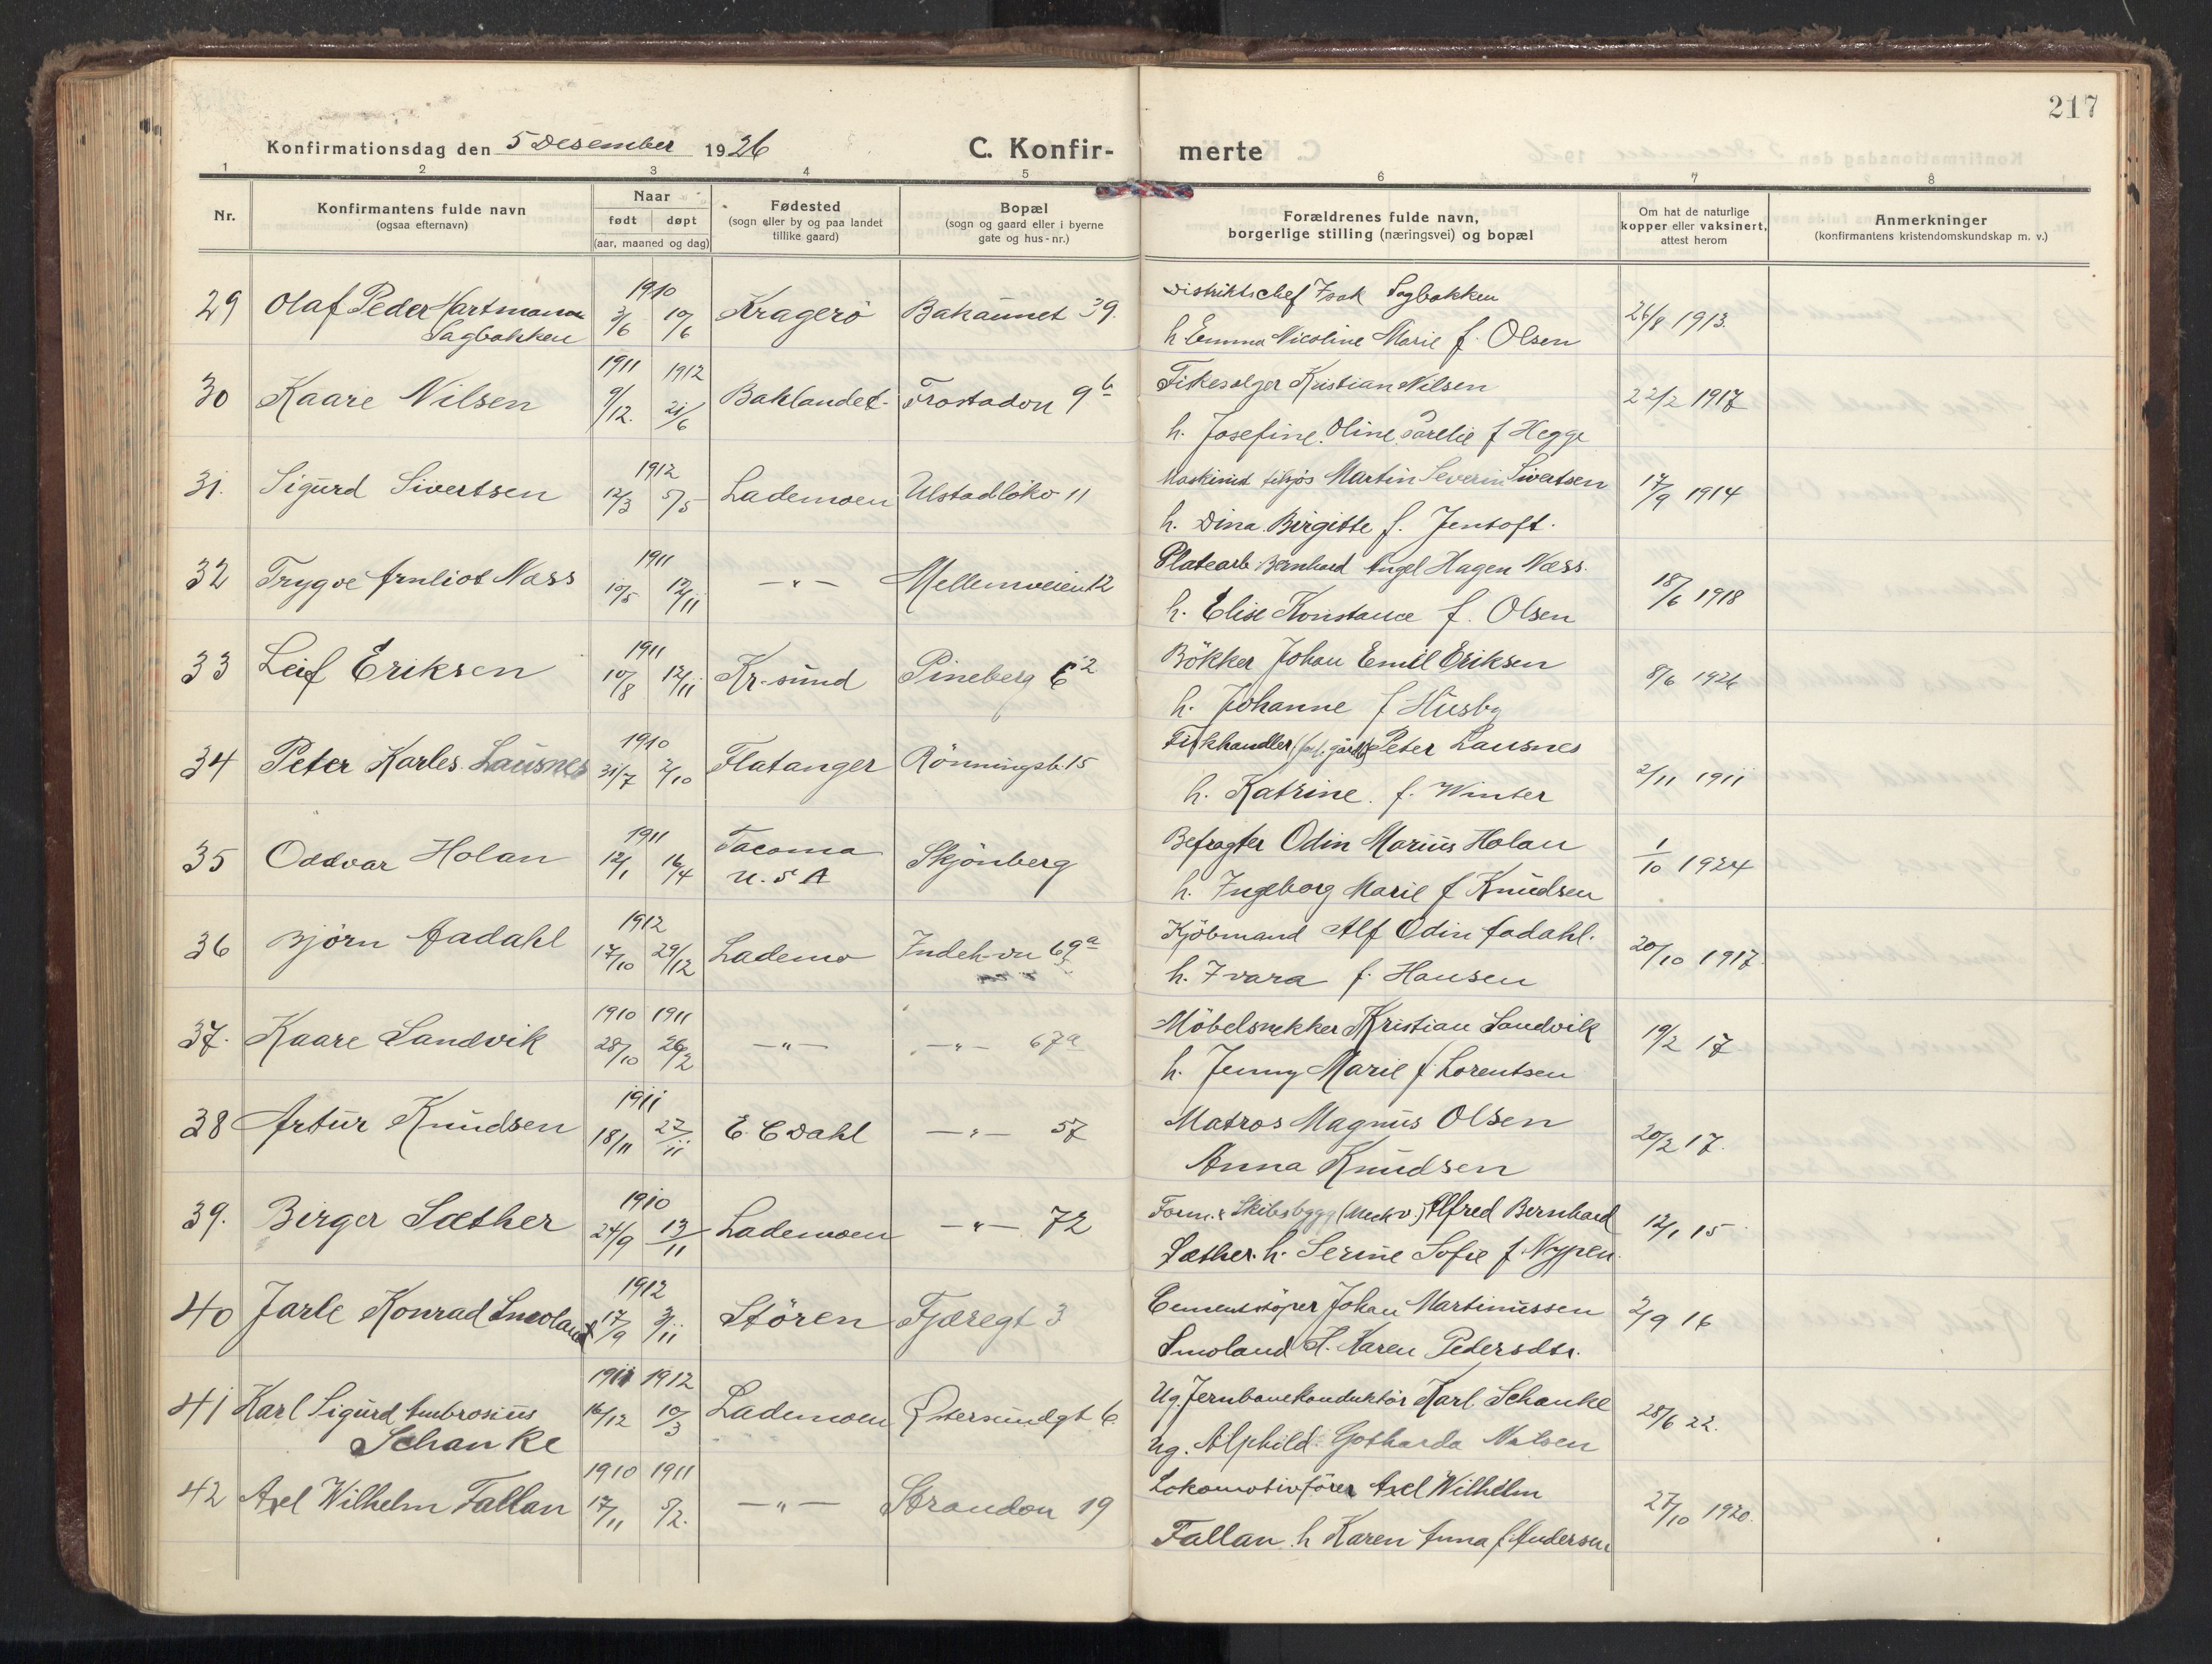 217
Konfirmationsdag den 5 Desember 1926 C. Konfir- merte
1 2 3 4 5 6 7 8
Nr. Konfirmantens fulde navn (ogsaa efternavn) Naar født døpt (aar, maaned og dag) Fødested (sogn eller by og paa landet tillike gaard) Bopæl (sogn og gaard eller i byerne gate og hus-nr.) Forældrenes fulde navn, borgerlige stilling (næringsvei) og bopæl Om hat de naturlige kopper eller vaksinert, attest herom Anmerkninger (konfirmantens kristendomskundskap m. v.)
29 Olaf Peder Hartmann Sagbakken 1910 3/6 10/6 Kragerö Bakaunet 39. Distriktschef Isak Sagbakken
h Emma Nicoline Marie f. Olsen 26/8 1913.
30 Kaare Nilsen 1911 9/12. 1912 21/6 Baklandet Frostadvn 9b Fiskesælger Kristian Nilsen
h. Josefine. Oline f Hegge 22/2 1917
31. Sigurd Sivertsen 1912 12/3 5/5 Lademoen Ulstadlökv 11 Maskinist tilsjøs Martin Severin Sivertsen
h. Dina Birgitte f. Jentoft. 17/9 1914
32 Trygve Arnliot Næss 1911 10/5 12/11 —"— Mellemveien 12 Platearb Bernhard Angel Hagen Næss.
h. Elise Konstance f. Olsen 18/6 1918
33 Leif Eriksen 1911 10/8 12/11 Kr-sund Pineberg 62 Bökker Johan Emil Eriksen
h. Johanne f Husby 8/6 1926
34 Peter Karles. Lausnes 1910 31/7 2/10 Flatanger Rönningsb. 15 Fiskhandler Peter Lausnes
h. Katrine. f. Winter 2/11 1911
35 Oddvar Holan 1911 12/1 16/4 Tacoma U.S.A Skjönberg Befragter Odin Marius Holan
h. Ingeborg Marie f Knudsen 1/10 1924
36 Bjørn Aadahl 1912 17/10 29/12 Lademo Indeh-vn 69a Kjöbmand Alf Odin Aadahl.
h. Ivara f. Hansen 20/10 1917.
37. Kaare Sandvik 1910 28/10 1911 26/2 —"— —"— 67a Möbelsnekker Kristian Sandvik
h. Jenny Marie f. Lorentsen 19/2 17
38 Artur Knudsen 1911 18/11 27/11 E. C Dahl —"— 57 Matros Magnus Olsen
Anna Knudsen 20/2 17.
39. Birger Sæther 1910 24/9 13/11 Lademoen —"— 72 Form. v Skibsbygg (Mek v.) Alfred Bernhard
Sæther. h. Serine Sofie f. Nypen. 12/1 15
40 Jarle Konrad Smoland 1912 17/9 3/11 Stören Fjæregt 3 Cementstöper Johan Martinussen
Smoland H. Karen Pedersdtr. 2/9 16
41 Karl Sigurd Ambrosius Schanke 1911 16/12 1912 10/3 Lademoen Östersundgt 6 Ug. Jernbanekonduktör Karl Schanke
ug. Alphild Gotharda Nilsen 28/6 22.
42 Axel Wilhelm Fallan 1910 17/11 1911 5/2. —"— Strandvn 19 Lokomotivförer Axel Wilhelm
Fallan. h Karen Anna f. Andersen 27/10 1920.